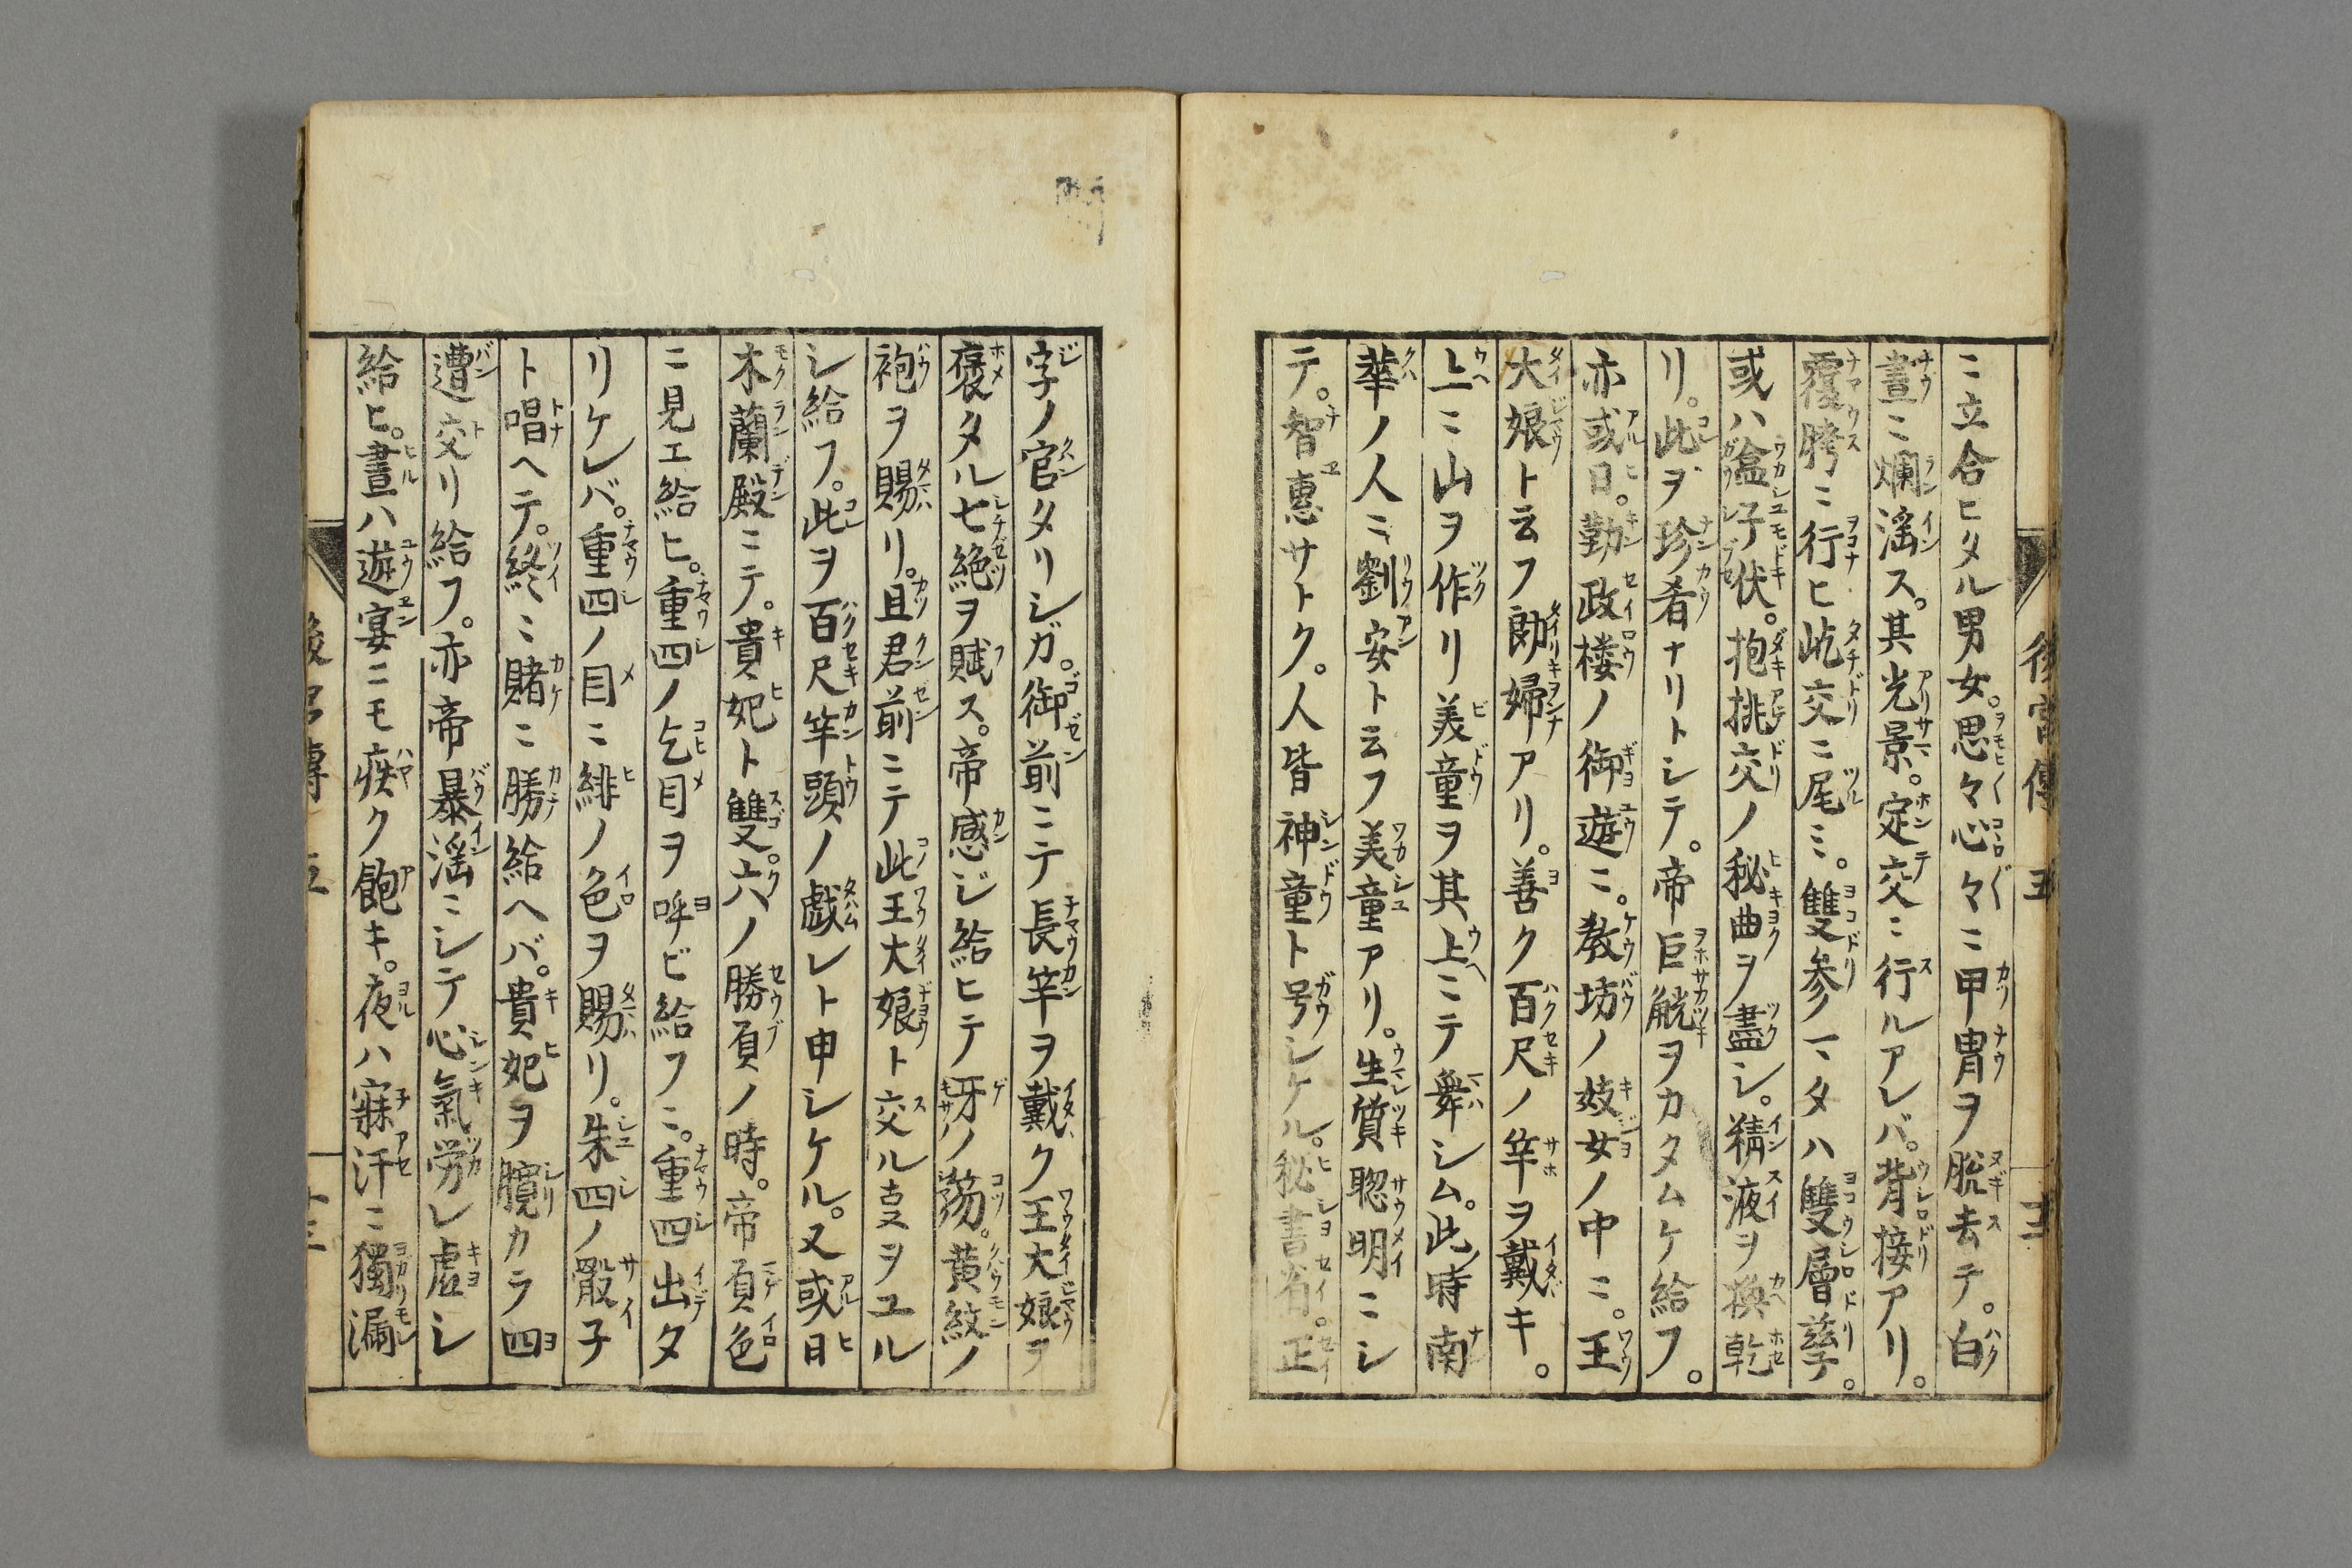 ニ立合ヒタル男女。思々心々ニ甲冑ヲ脱去テ。白
晝ニ爛滛ス。其光景。定交ニ行ルアレバ。背接アリ。
覆胯ニ行ヒ屹交ニ尾ミ。雙参ヽタハ雙層孳。
或ハ子伏。抱挑交ノ秘曲ヲ盡シ。精液ヲ換乾
リ。此ヲ珍肴ナリトシテ。帝巨觥ヲカタムケ給フ。
亦或日。勤政楼ノ御遊ニ。教坊ノ妓女ノ中ニ。王
大娘ト云フ婦アリ。善ク百尺ノ竿ヲ戴キ。
上ニ山ヲ作リ美童ヲ其上ニテ舞シム。此時南
華ノ人ニ劉安ト云フ美童アリ。生質聡明ニシ
テ。智惠サトク。人皆神童ト号シケル。秘書省。正
字ノ官タリシガ。御前ニテ長竿ヲ戴ク王大娘ヲ
褒タル七絶ヲ賦ス。帝感ジ給ヒテ牙ノ笏。黄紋ノ
袍ヲ賜リ。且君前ニテ此王大娘ト交ル叓ヲユル
シ給フ。此ヲ百尺竿頭ノ戯レト申シケル。又或日
木蘭殿ニテ。貴妃ト雙六ノ勝負ノ時。帝負色
ニ見エ給ヒ。重四ノ乞目ヲ呼ビ給フニ。重四出タ
リケレバ。重四ノ目ニ緋ノ色ヲ賜リ。朱四ノ骰子
ト唱ヘテ。終ニ賭ニ勝給ヘバ。貴妃ヲ臗カラ四
遭交リ給フ。亦帝暴滛ニシテ心氣労レ虚シ
給ヒ。晝ハ遊宴ニモ疾ク飽キ。夜ハ寐汗ニ獨漏